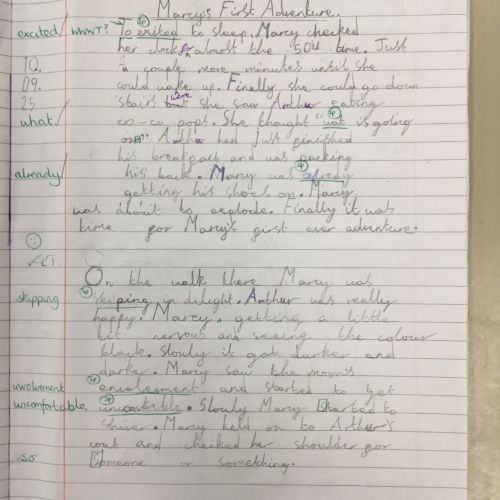 Marcy's First Adventure.
excited WWWT? To exited to sleep, Marcy checked
her clock for almost the 50th time. Just
10. a couple more minutes until she
09. could wake up. Finally she could go down
25 stairs were she saw Arthur eating
what co-co pops. She thought "wat is going
on?". Arthur had just finished
his breakfast and was packing
already his back. Marcy was alredy
getting his shoes on. Marcy
was about to explode. Finally it was
time for Marcy's first ever adventure.
On the walk there Marcy was
skipping skiping in delight. Arthur was really
happy. Marcy getting a little
bit nervous and seeing the colour
black. Slowly it got darker and
darker. Marcy saw the moon's
involvement envolement and started to get
uncomfortable uncontible. Slowly Marcy started to
shiver. Marcy held on to Arthur's
coat and checked her shoulder for
so Someone or something.